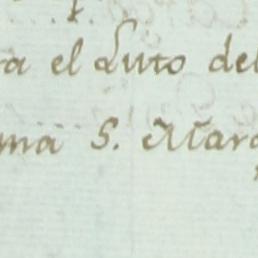 ra el Luto del
ma S. Mara